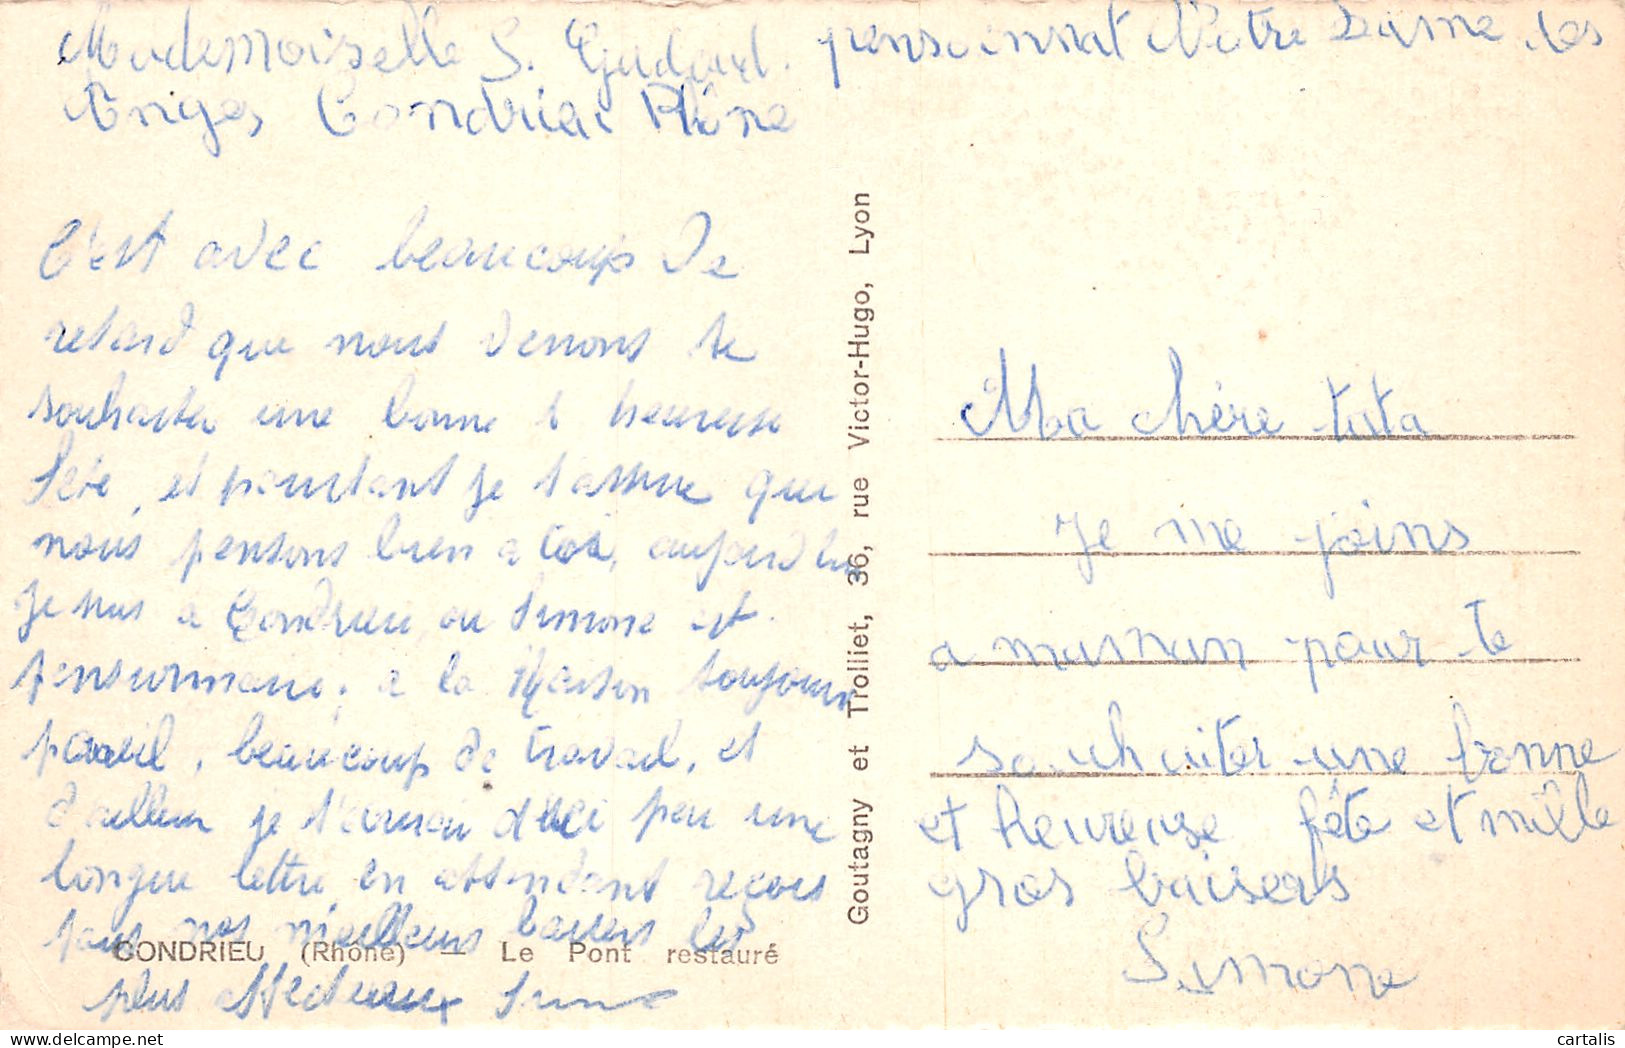 Mademoiselle S. pensionnat Notre Dame des
Anges, Condrieu Rhône
C'est avec beaucoup de
retard que nous venons te
souhaiter une bonne et heureuse
fête, et pourtant je t'assure que
nous pensons bien a toi, aujourd'hui
je suis a Condrieu ou Simone est
pensionnaire, a la maison toujours
pareil, beaucoup de travail, et
d'ailleur je t'enverrai d'ici peu une
longue lettre, en attendant recois
tous nos meilleurs baisers les
plus affectueux
CONDRIEU (Rhône) — Le Pont restauré
Goutagny et Trolliet, 36, rue Victor-Hugo, Lyon
Ma chère tata
je me joins
a maman pour te
souhaiter une bonne
et heureuse fête et mille
gros baisers
Simone
cartalis